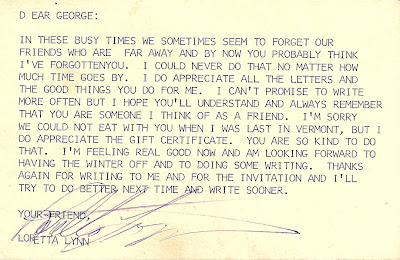 D EAR GEORGE:
IN THESE BUSY TIMES WE SOMETIMES SEEM TO FORGET OUR
FRIENDS WHO ARE FAR AWAY AND BY NOW YOU PROBABLY THINK
I'VE FORGOTTENYOU. I COULD NEVER DO THAT NO MATTER HOW
MUCH TIME GOES BY. I DO APPRECIATE ALL THE LETTERS AND
THE GOOD THINGS YOU DO FOR ME. I CAN'T PROMISE TO WRITE
MORE OFTEN BUT I HOPE YOU'LL UNDERSTAND AND ALWAYS REMEMBER
THAT YOU ARE SOMEONE I THINK OF AS A FRIEND. I'M SORRY
WE COULD NOT EAT WITH YOU WHEN I WAS LAST IN VERMONT, BUT I
DO APPRECIATE THE GIFT CERTIFICATE. YOU ARE SO KIND TO DO
THAT. I'M FEELING REAL GOOD NOW AND AM LOOKING FORWARD TO
HAVING THE WINTER OFF AND TO DOING SOME WRITING. THANKS
AGAIN FOR WRITING TO ME AND FOR THE INVITATION AND I'LL
TRY TO DO BETTER NEXT TIME AND WRITE SOONER.
YOUR FRIEND,
Loretta Lynn
LORETTA LYNN